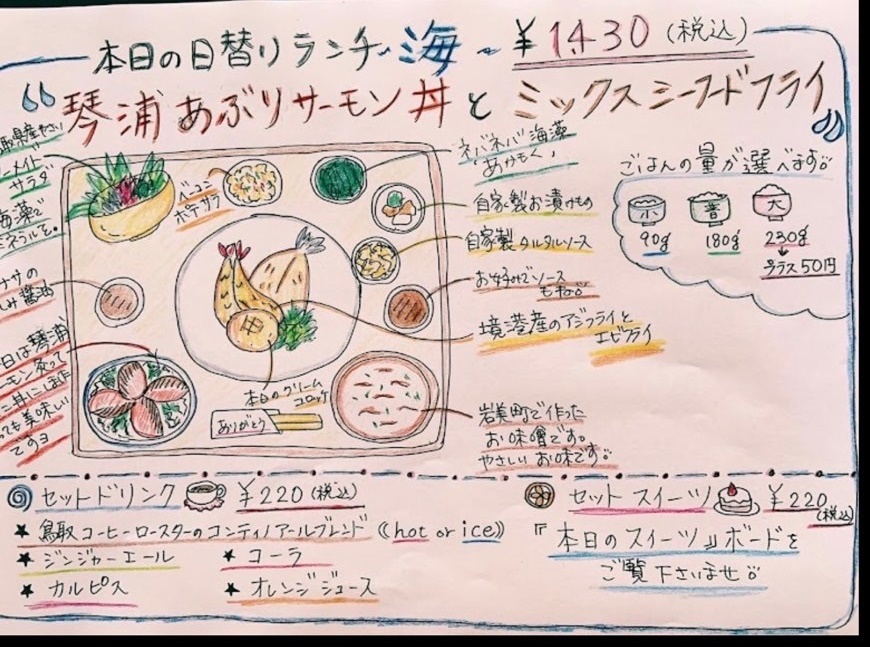 本日の日替りランチ・海~ ¥1430(税込)
琴浦あぶりサーモン丼とミックスシーフードフライ
取県産やさい
メイド
サラダ
海藻で
ミネラルを。
ベーコン
ポテサラ
ネバネバ海藻
「あかもく」
自家製お漬けもの
自家製タルタルソース
お好みでソース
もね
境港産のアジフライと
エビフライ
ごはんの量が選べます
小 普 大
90g 180g 230g
プラス50円
ナサの
しみ醤油
日は琴浦
モン炙って
丼にしました
っても美味しい
ですヨ
本日のクリーム
コロッケ
ありがとう
岩美町で作った
お味噌です。
やさしいお味です
セットドリンク ¥220(税込)
★鳥取コーヒーロースターのコンティノアールブレンド《hot or ice》
★ジンジャーエール ★コーラ
★カルピス ★オレンジジュース
セットスイーツ ¥220(税込)
『本日のスイーツ』ボードを
ご覧下さいませ